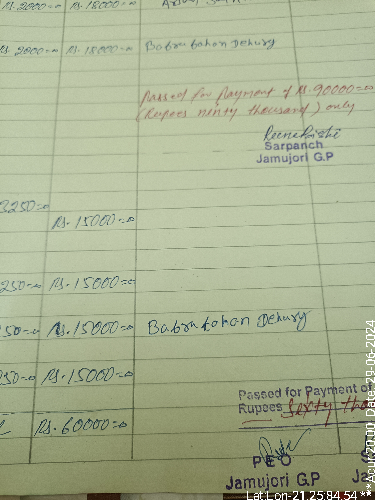 Rs. 2000=00 Rs. 18000=00
Rs. 2000=00 Rs. 18000=00 Babrubahan Dehury
Passed for payment of Rs. 90000=00
(Rupees ninty thousand) only
Sarpanch
Jamujori G.P
3250=00
Rs. 15000=00
250=00 Rs. 15000=00
250=00 Rs. 15000=00 Babrubahan Dehury
250=00 Rs. 15000=00
Passed for Payment of
Rupees Sixty tho
Rs. 60000=00
PEO
Jamujori G.P
Lat Lon-21.25 84.54 ** Acur 20.00 Date 29-06-2024